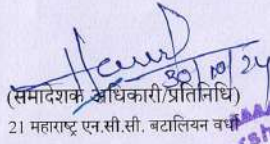 30/10/24
(समादेशक अधिकारी/प्रतिनिधि)
21 महाराष्ट्र एन.सी.सी. बटालियन वर्धा